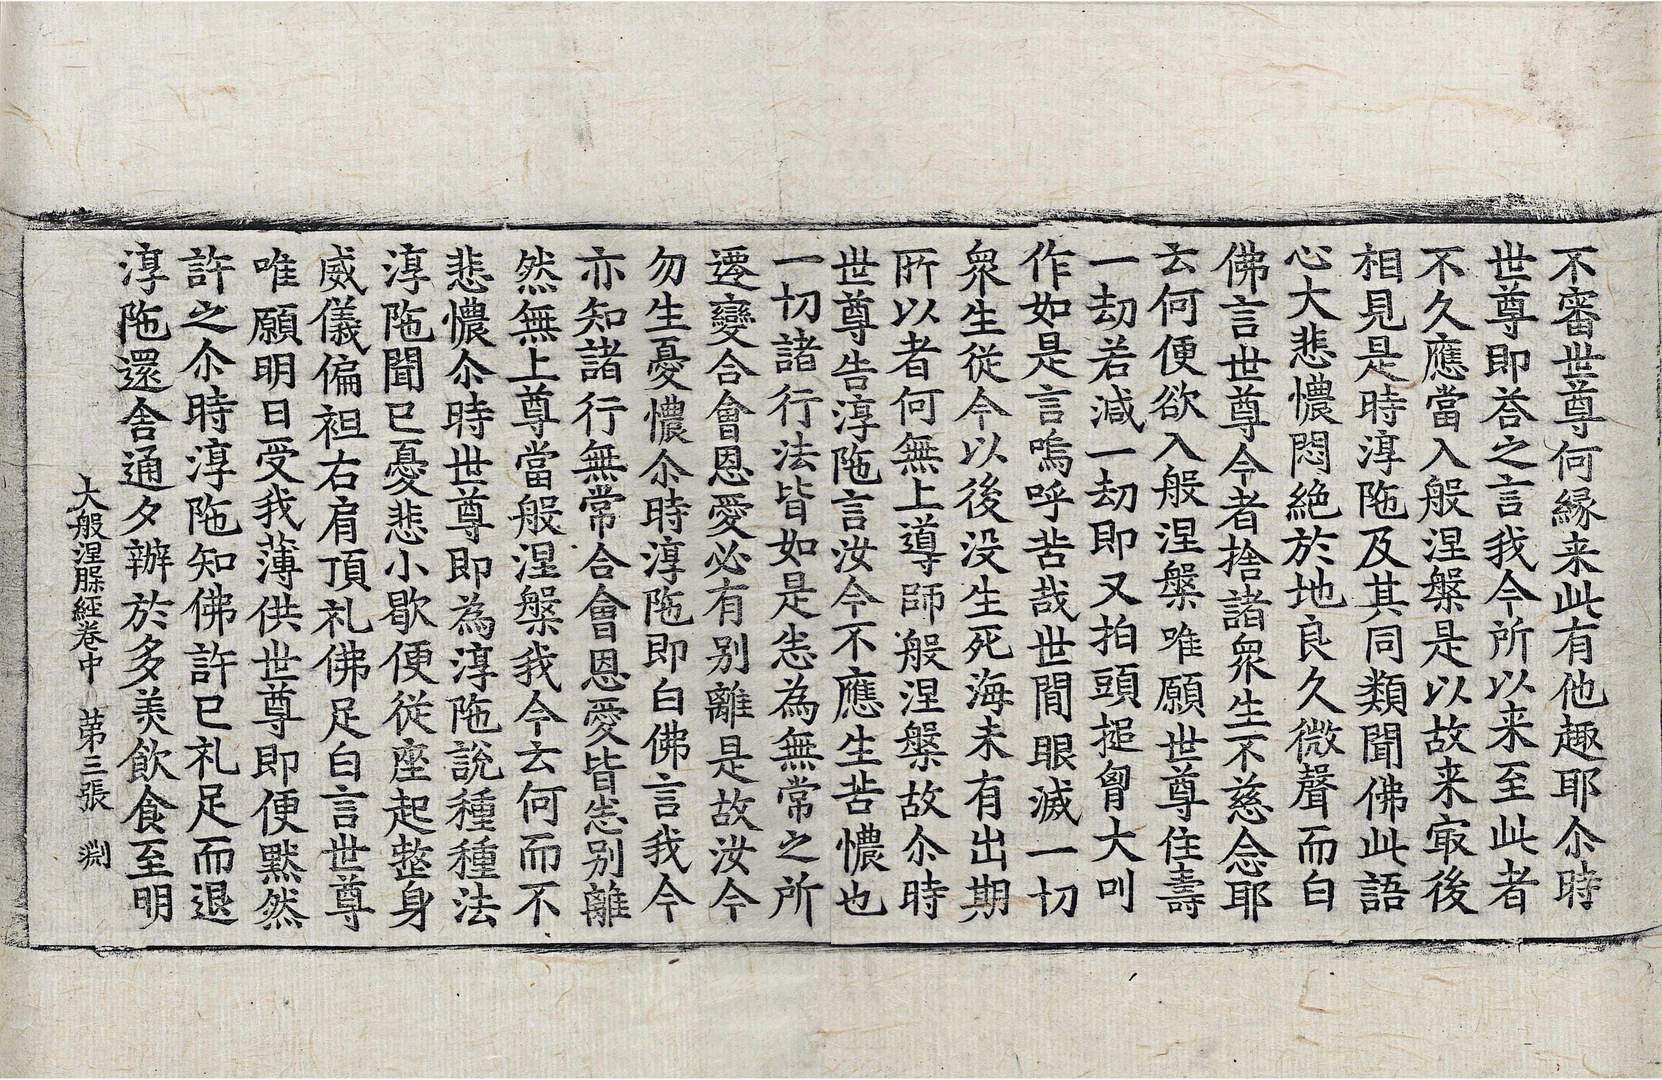 不審世尊何縁来此有他趣耶尒時
世尊即荅之言我今所以来至此者
不久應當入般涅槃是以故来㝡後
相見是時淳陁及其同類聞佛此語
心大悲懷悶絶於地良久微聲而白
佛言世尊今者捨諸衆生不慈念耶
云何便欲入般涅槃唯願世尊住壽
一劫若減一劫即又拍頭搥胷大叫
作如是言嗚呼苦哉世間眼滅一切
衆生從今以後没生死海未有出期
所以者何無上導師般涅槃故尒時
世尊告淳陁言汝今不應生苦懷也
一切諸行法皆如是恙為無常之所
遷變合會恩愛必有別離是故汝今
勿生憂懷尒時淳陁即白佛言我今
亦知諸行無常合會恩愛皆恙別離
然無上尊當般涅槃我今云何而不
悲懷尒時世尊即為淳陁說種種法
淳陁聞已憂悲小歇便從座起整身
威儀偏袒右肩頂礼佛足白言世尊
唯願明日受我薄供世尊即便黙然
許之尒時淳陁知佛許已礼足而退
淳陁還舍通夕辦於多美飲食至明
大般涅槃經卷中 苐三張 淵